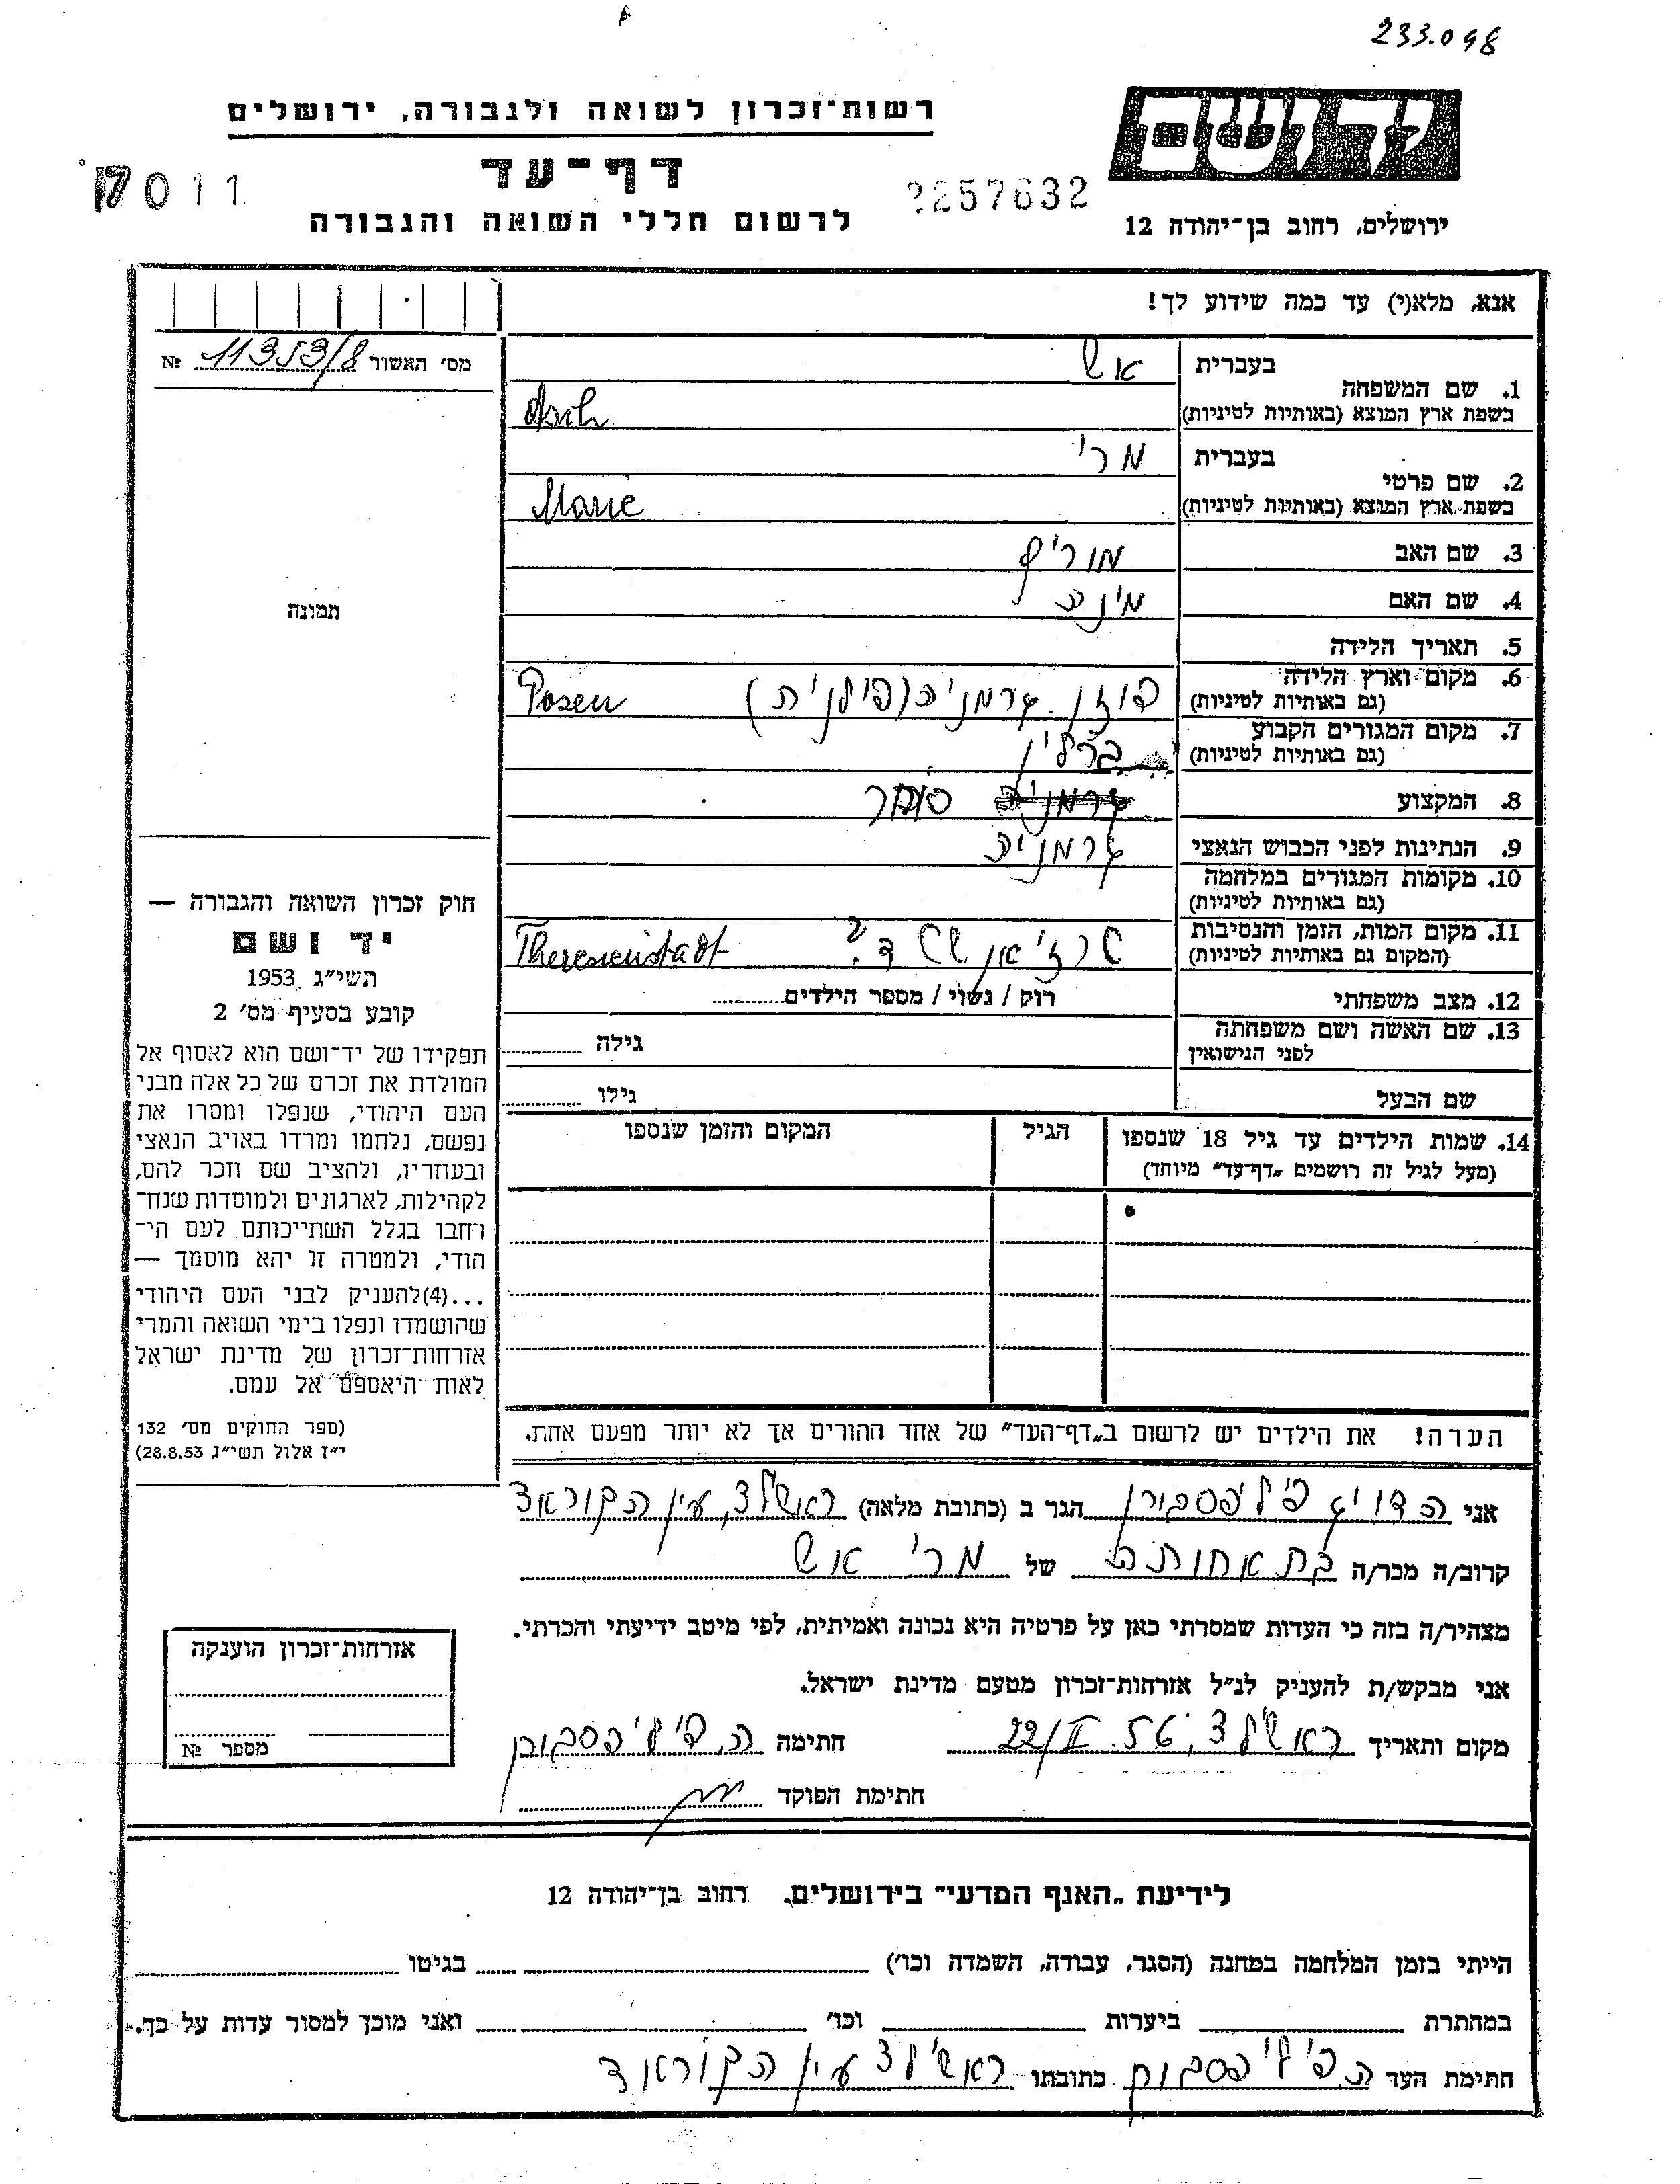 233.098
רשות־זכרון לשואה ולגבורה, ירושלים
ידושם
דף־עד
17011
2257632
לרשום חללי השואה והגבורה
ירושלים, רחוב בן־יהודה 12
אנא, מלא(י) עד כמה שידוע לך!
מס׳ האשור 11353/8 №
תמונה
1. שם המשפחה
בעברית אש
בשפת ארץ המוצא (באותיות לטיניות) Asch
2. שם פרטי
בעברית מרי
בשפת ארץ המוצא (באותיות לטיניות) Marie
3. שם האב מוריץ
4. שם האם מינה
5. תאריך הלידה
6. מקום וארץ הלידה פוזן גרמניה (פולנית) Posen
(גם באותיות לטיניות)
7. מקום המגורים הקבוע ברלין
(גם באותיות לטיניות)
8. המקצוע גרמניה סוחר
9. הנתינות לפני הכבוש הנאצי גרמניה
10. מקומות המגורים במלחמה
(גם באותיות לטיניות)
11. מקום המות, הזמן והנסיבות Theresienstadt
(המקום גם באותיות לטיניות)
12. מצב משפחתי רוק / נשוי / מספר הילדים
13. שם האשה ושם משפחתה גילה
לפני הנישואין
שם הבעל גילו
14. שמות הילדים עד גיל 18 שנספו הגיל המקום והזמן שנספו
(מעל לגיל זה רושמים „דף־עד״ מיוחד)
הערה! את הילדים יש לרשום ב„דף־העד״ של אחד ההורים אך לא יותר מפעם אחת.
חוק זכרון השואה והגבורה —
יד ושם
תשי״ג 1953
קובע בסעיף מס׳ 2
תפקידו של יד־ושם הוא לאסוף אל
המולדת את זכרם של כל אלה מבני
העם היהודי, שנפלו ומסרו את
נפשם, נלחמו ומרדו באויב הנאצי
ובעוזריו, ולהציב שם וזכר להם,
לקהילות, לארגונים ולמוסדות שנח־
רבו בגלל השתייכותם לעם הי־
הודי, ולמטרה זו יהא מוסמך —
...(4)להעניק לבני העם היהודי
שהושמדו ונפלו בימי השואה והמרי
אזרחות־זכרון של מדינת ישראל
לאות היאספם אל עמם.
(ספר החוקים מס׳ 132
י״ז אלול תשי״ג 28.8.53)
אני הדויג פיליפסבורן הגר ב (כתובת מלאה) ראשל״צ, עין הקורא
קרוב/ה מכר/ה בת אחותה של מרי אש
מצהיר/ה בזה כי העדות שמסרתי כאן על פרטיה היא נכונה ואמיתית, לפי מיטב ידיעתי והכרתי.
אני מבקש/ת להעניק לנ״ל אזרחות־זכרון מטעם מדינת ישראל.
מקום ותאריך ראשל״צ, 22/II. 56 חתימה ה. פיליפסבורן
חתימת הפוקד
אזרחות־זכרון הוענקה
מספר №
לידיעת „האגף המדעי״ בירושלים, רחוב בן־יהודה 12
הייתי בזמן המלחמה במחנה (הסגר, עבודה, השמדה וכו׳) בגיטו
במחתרת ביערות וכו׳ ואני מוכן למסור עדות על כך.
חתימת העד ה. פיליפסבורן כתובתו ראשל״צ עין הקורא